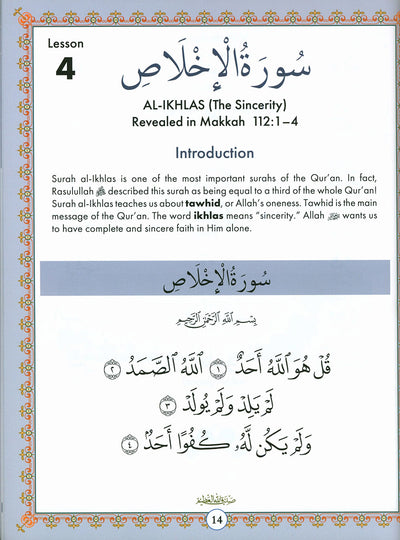 Lesson
4
سُورَةُ الْإِخْلَاصِ
AL-IKHLAS (The Sincerity)
Revealed in Makkah 112:1–4
Introduction
Surah al-Ikhlas is one of the most important surahs of the Qur'an. In fact,
Rasulullah ﷺ described this surah as being equal to a third of the whole Qur'an!
Surah al-Ikhlas teaches us about tawhid, or Allah's oneness. Tawhid is the main
message of the Qur'an. The word ikhlas means "sincerity." Allah wants us
to have complete and sincere faith in Him alone.
سُورَةُ الْإِخْلَاصِ
بِسْمِ اللَّهِ الرَّحْمَٰنِ الرَّحِيمِ
قُلْ هُوَ اللَّهُ أَحَدٌ ١ اللَّهُ الصَّمَدُ ٢
لَمْ يَلِدْ وَلَمْ يُولَدْ ٣
وَلَمْ يَكُن لَّهُ كُفُوًا أَحَدٌ ٤
صدق الله العظيم
14